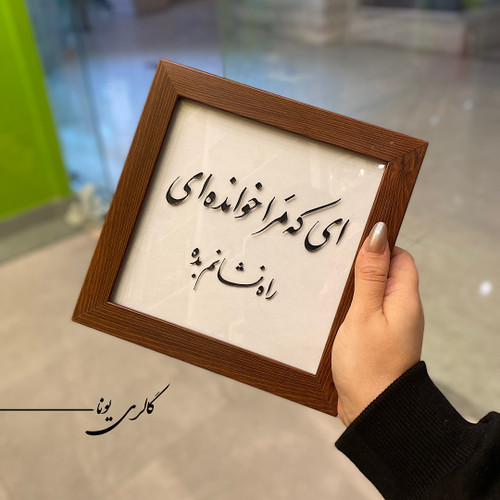 ای که مَرا خوانده ای
راه نشانم بده
گالری یونا